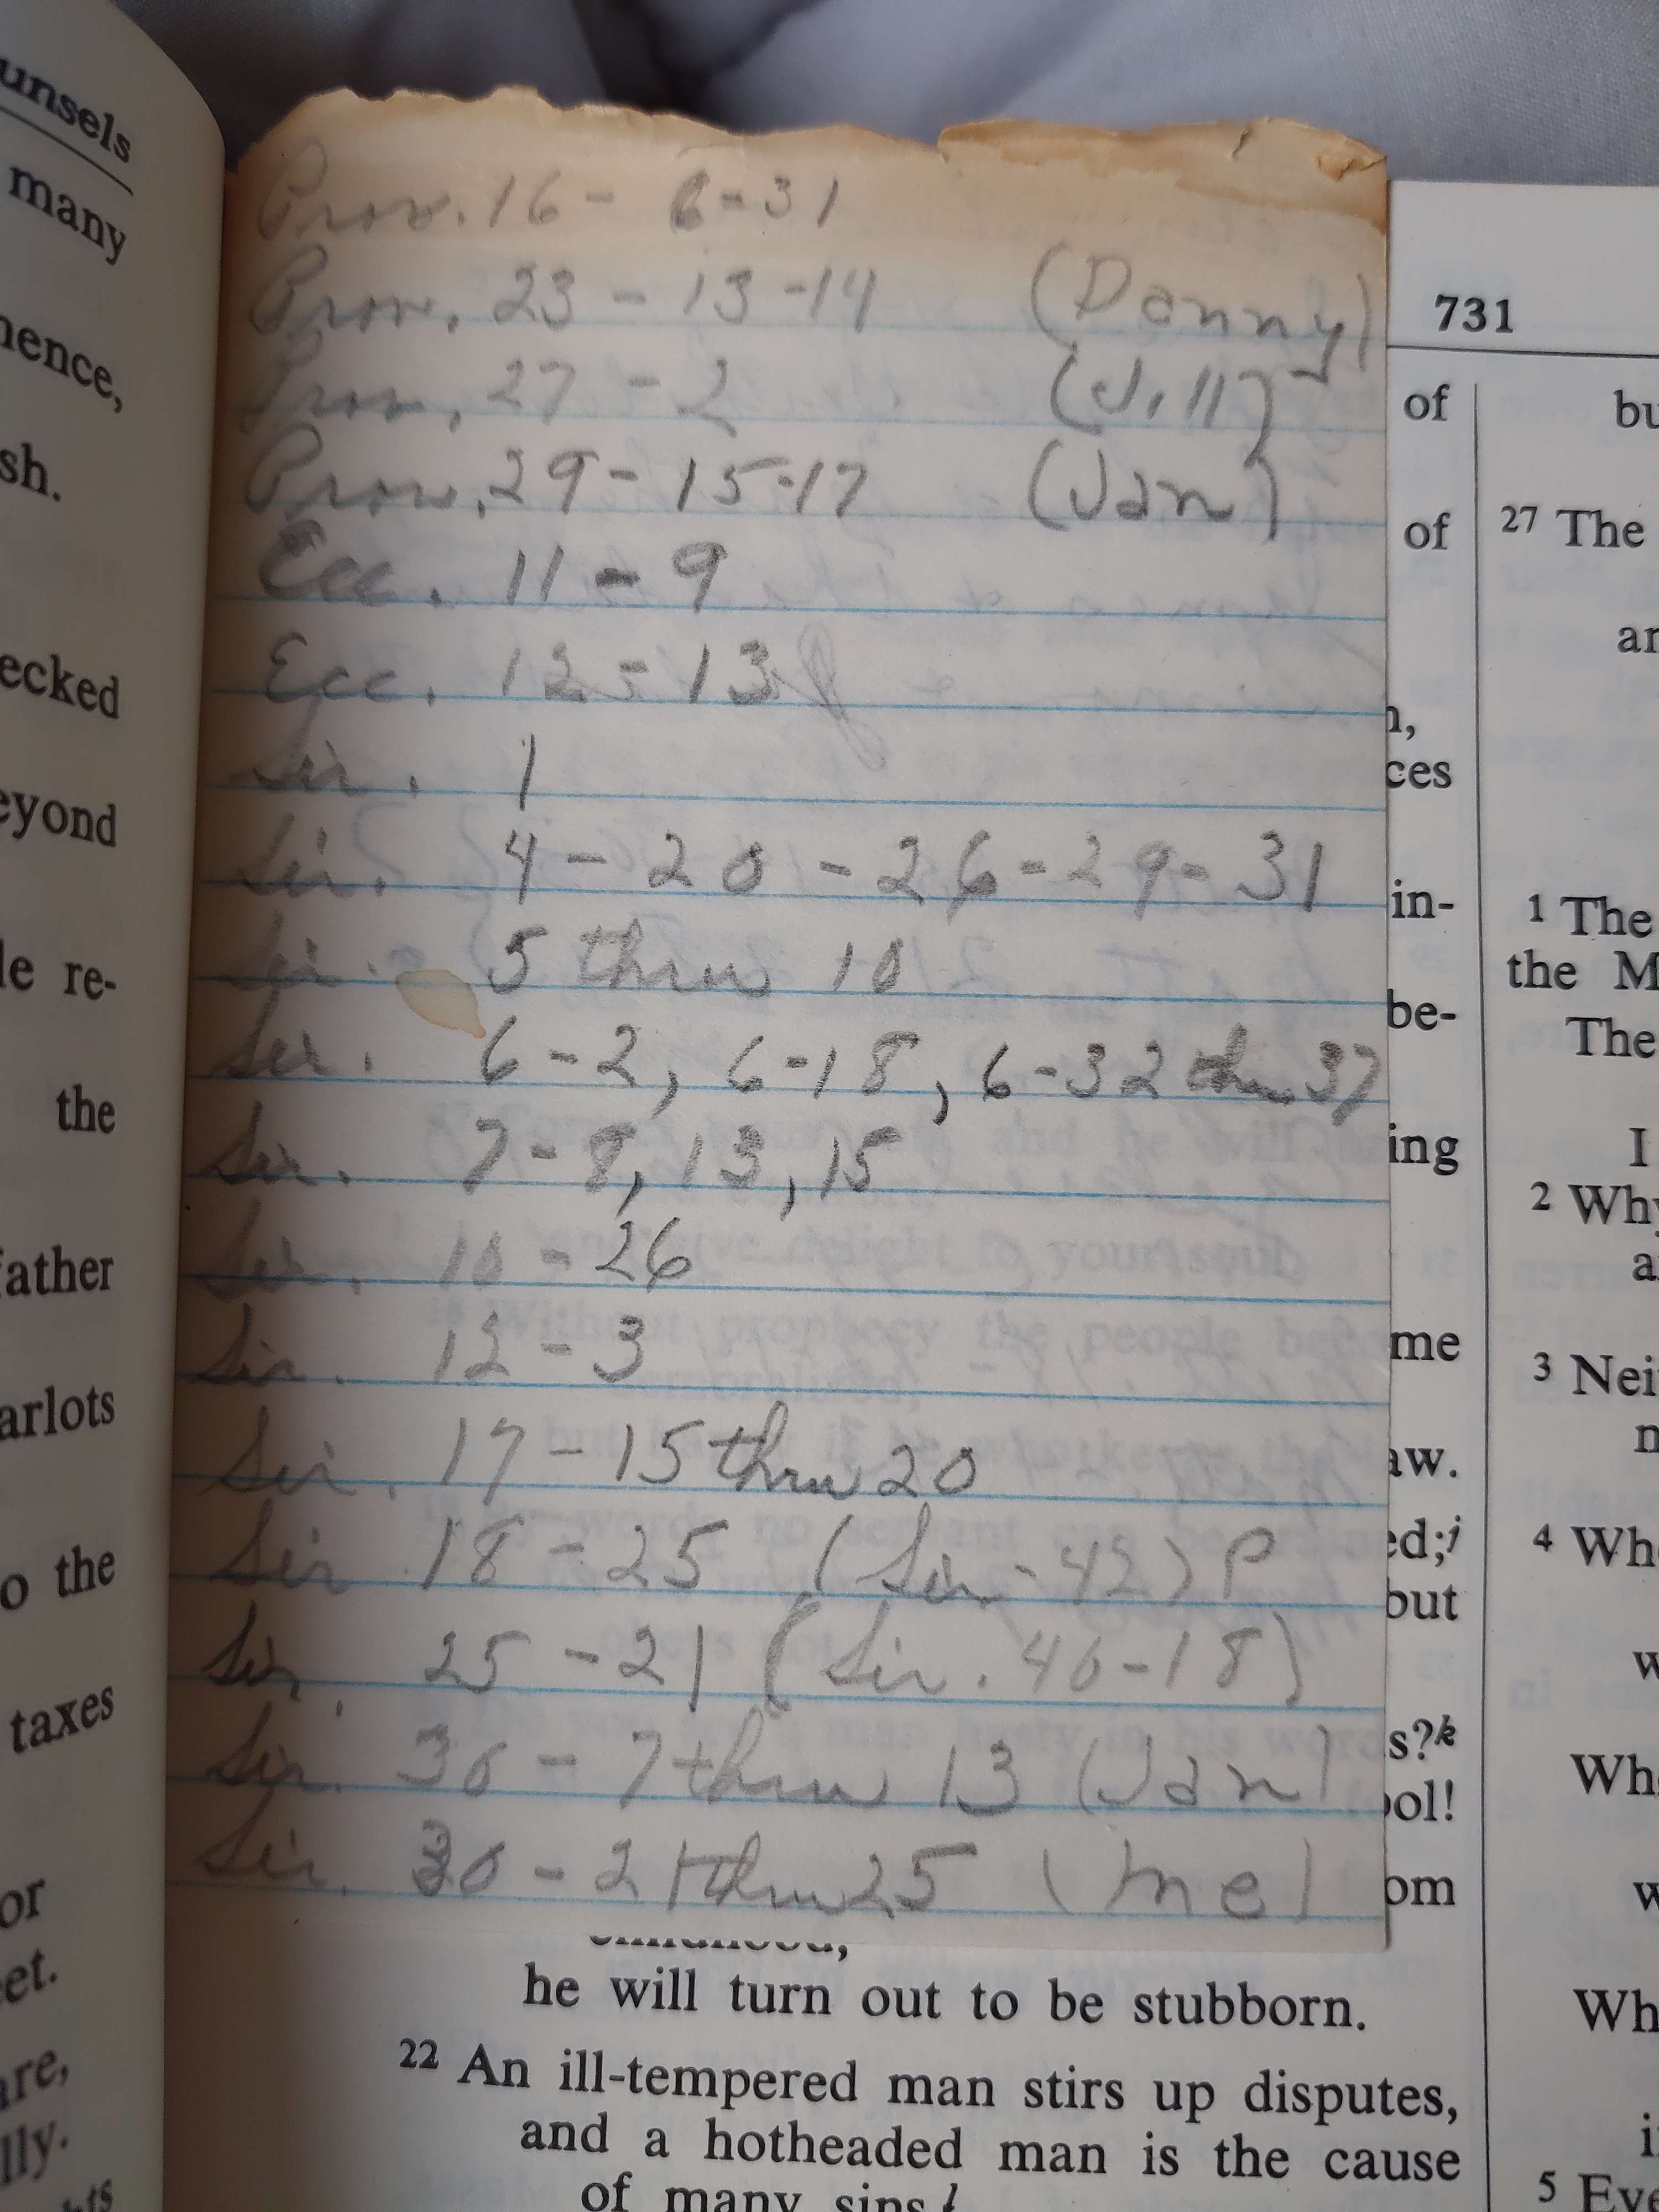 unsels
many
nence,
sh.
ecked
eyond
le re-
the
father
arlots
o the
taxes
or
eet.
are,
lly.
Prov. 16 - 8-31
Prov. 23 - 13-14 (Danny)
Prov. 27 - 2 (Jill)
Prov. 29 - 15-17 (Jan)
Ecc. 11 - 9
Ecc. 12 - 13
Sir. 1
Sir. 4 - 20 - 26 - 29 - 31
Sir. 5 thru 10
Sir. 6-2, 6-18, 6-32 thru 37
Sir. 7-8, 13, 15
Sir. 10 - 26
Sir. 12 - 3
Sir. 17 - 15 thru 20
Sir 18 - 25 (Sir - 42) P
Sir. 25 - 21 (Sir. 40-18)
Sir. 30 - 7 thru 13 (Jan)
Sir. 30 - 21 thru 25 (me)
he will turn out to be stubborn.
22 An ill-tempered man stirs up disputes,
and a hotheaded man is the cause
of many sins.l
731
of
of
ces
in-
be-
ing
me
aw.
ed;j
but
s?k
ool!
om
bu
27 The
ar
1 The
the M
The
I
2 Why
a
3 Nei
n
4 Who
w
Wh
w
Wh
i
5 Eve